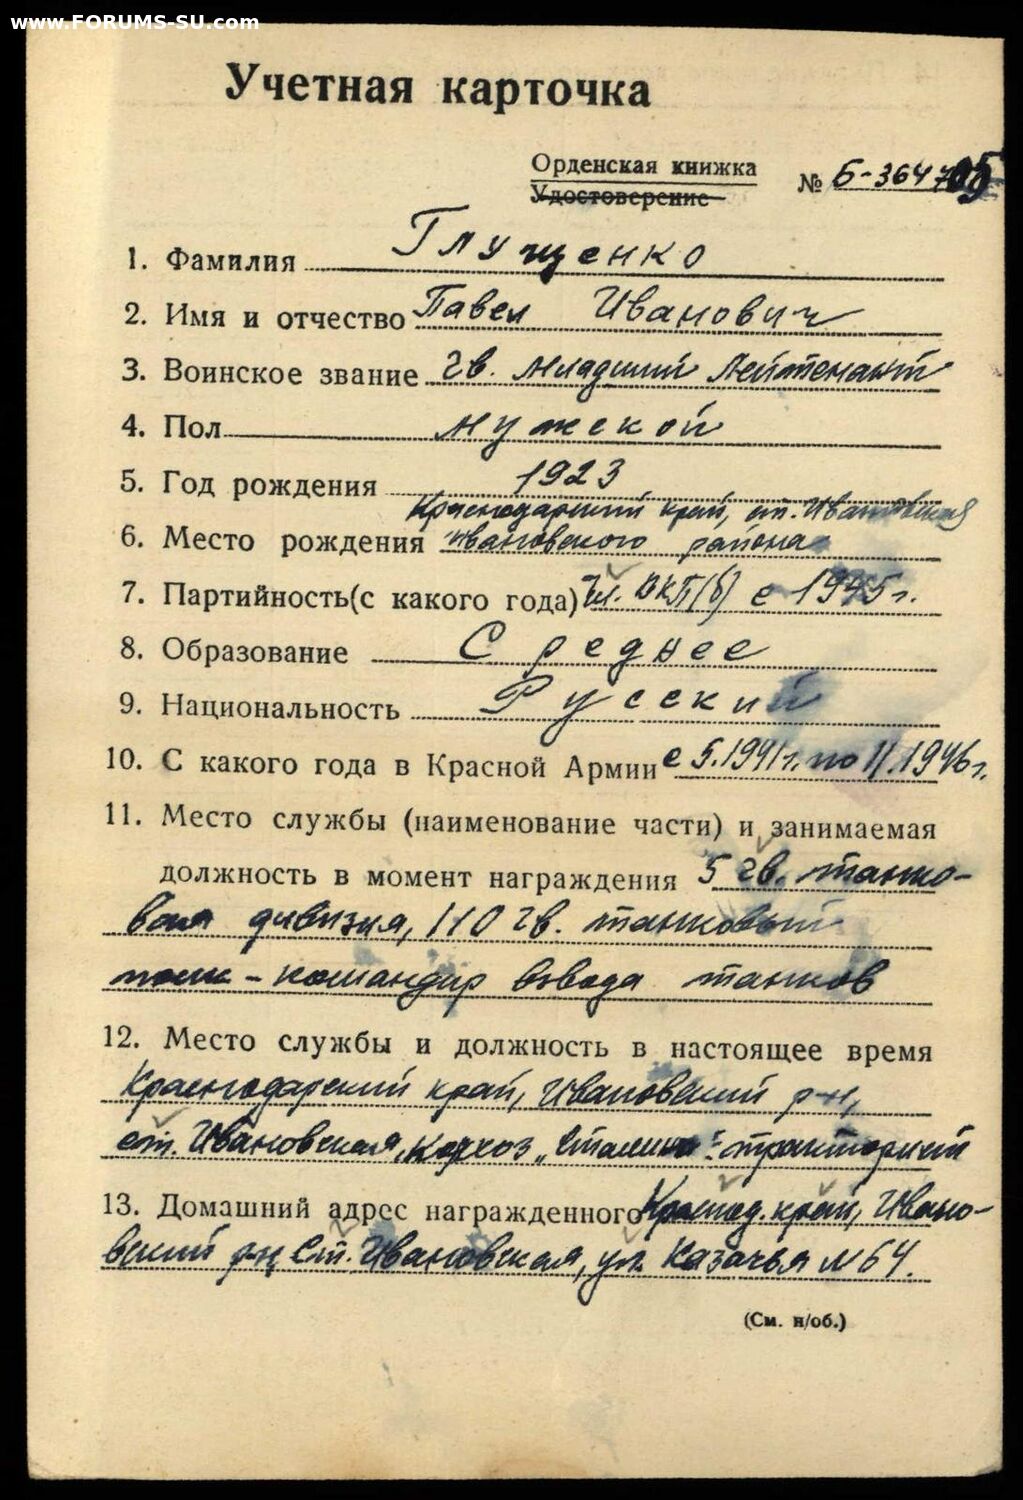 www.FORUMS-SU.com
Учетная карточка
Орденская книжка
№ Б-364705
Удостоверение
1. Фамилия Глущенко
2. Имя и отчество Павел Иванович
3. Воинское звание гв. младший лейтенант
4. Пол мужской
5. Год рождения 1923
Краснодарский край, ст. Ивановская
6. Место рождения Ивановского района
7. Партийность(с какого года) Чл. ВКП(б) с 1945 г.
8. Образование Среднее
9. Национальность Русский
10. С какого года в Красной Армии с 5.1941г. по 11.1946г.
11. Место службы (наименование части) и занимаемая
должность в момент награждения 5 гв. танко-
вая дивизия, 110 гв. танковый
полк - командир взвода танков
12. Место службы и должность в настоящее время
Краснодарский край, Ивановский р-н,
ст. Ивановская, колхоз „Сталина"
13. Домашний адрес награжденного Краснод. край, Ивано-
вский р-н ст. Ивановская, ул. Казачья №64.
(См. н/об.)